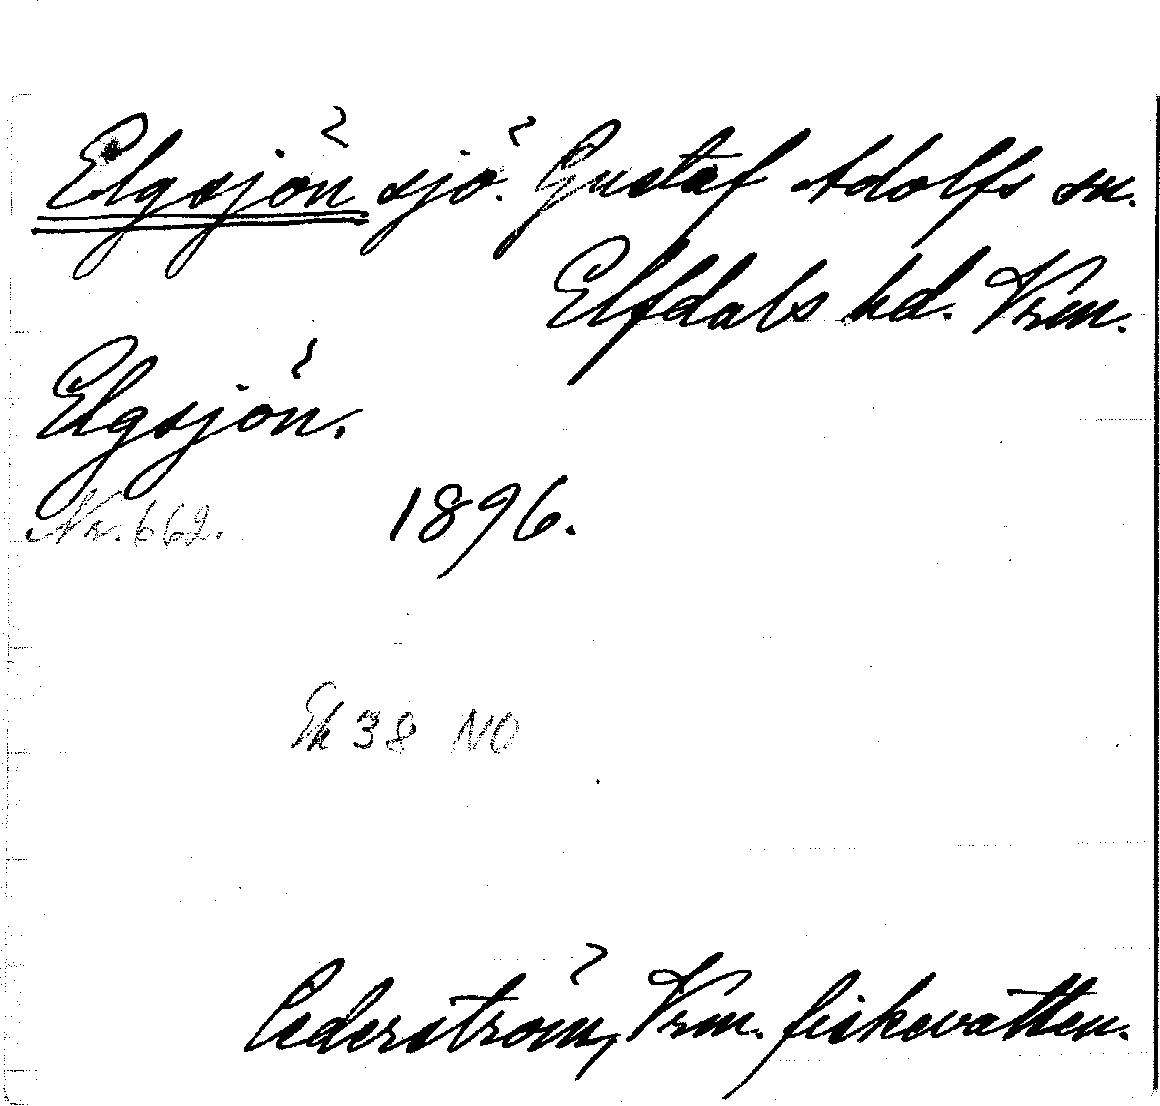 Elgsjön sjö. Gustaf Adolfs sn.
Elfdals hd. Vrm.
Elgsjön.
Nr. 662. 1896.
Ek 38 NO
Cederström, Vrm. fiskevatten.